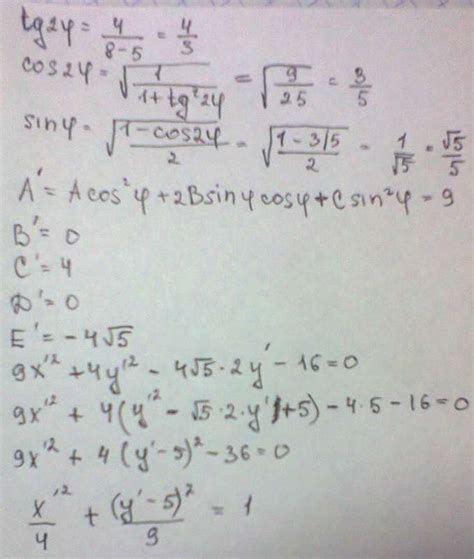 tg2φ = 4/(8-5) = 4/3
cos2φ = √(1/(1+tg²2φ)) = √(9/25) = 3/5
sinφ = √((1-cos2φ)/2) = √((1-3/5)/2) = 1/√5 = √5/5
A' = Acos²φ + 2Bsinφcosφ + Csin²φ = 9
B' = 0
C' = 4
D' = 0
E' = -4√5
9x'² + 4y'² - 4√5·2y' - 16 = 0
9x'² + 4(y'² - √5·2·y' + 5) - 4·5 - 16 = 0
9x'² + 4(y'-5)² - 36 = 0
x'²/4 + (y'-5)²/9 = 1